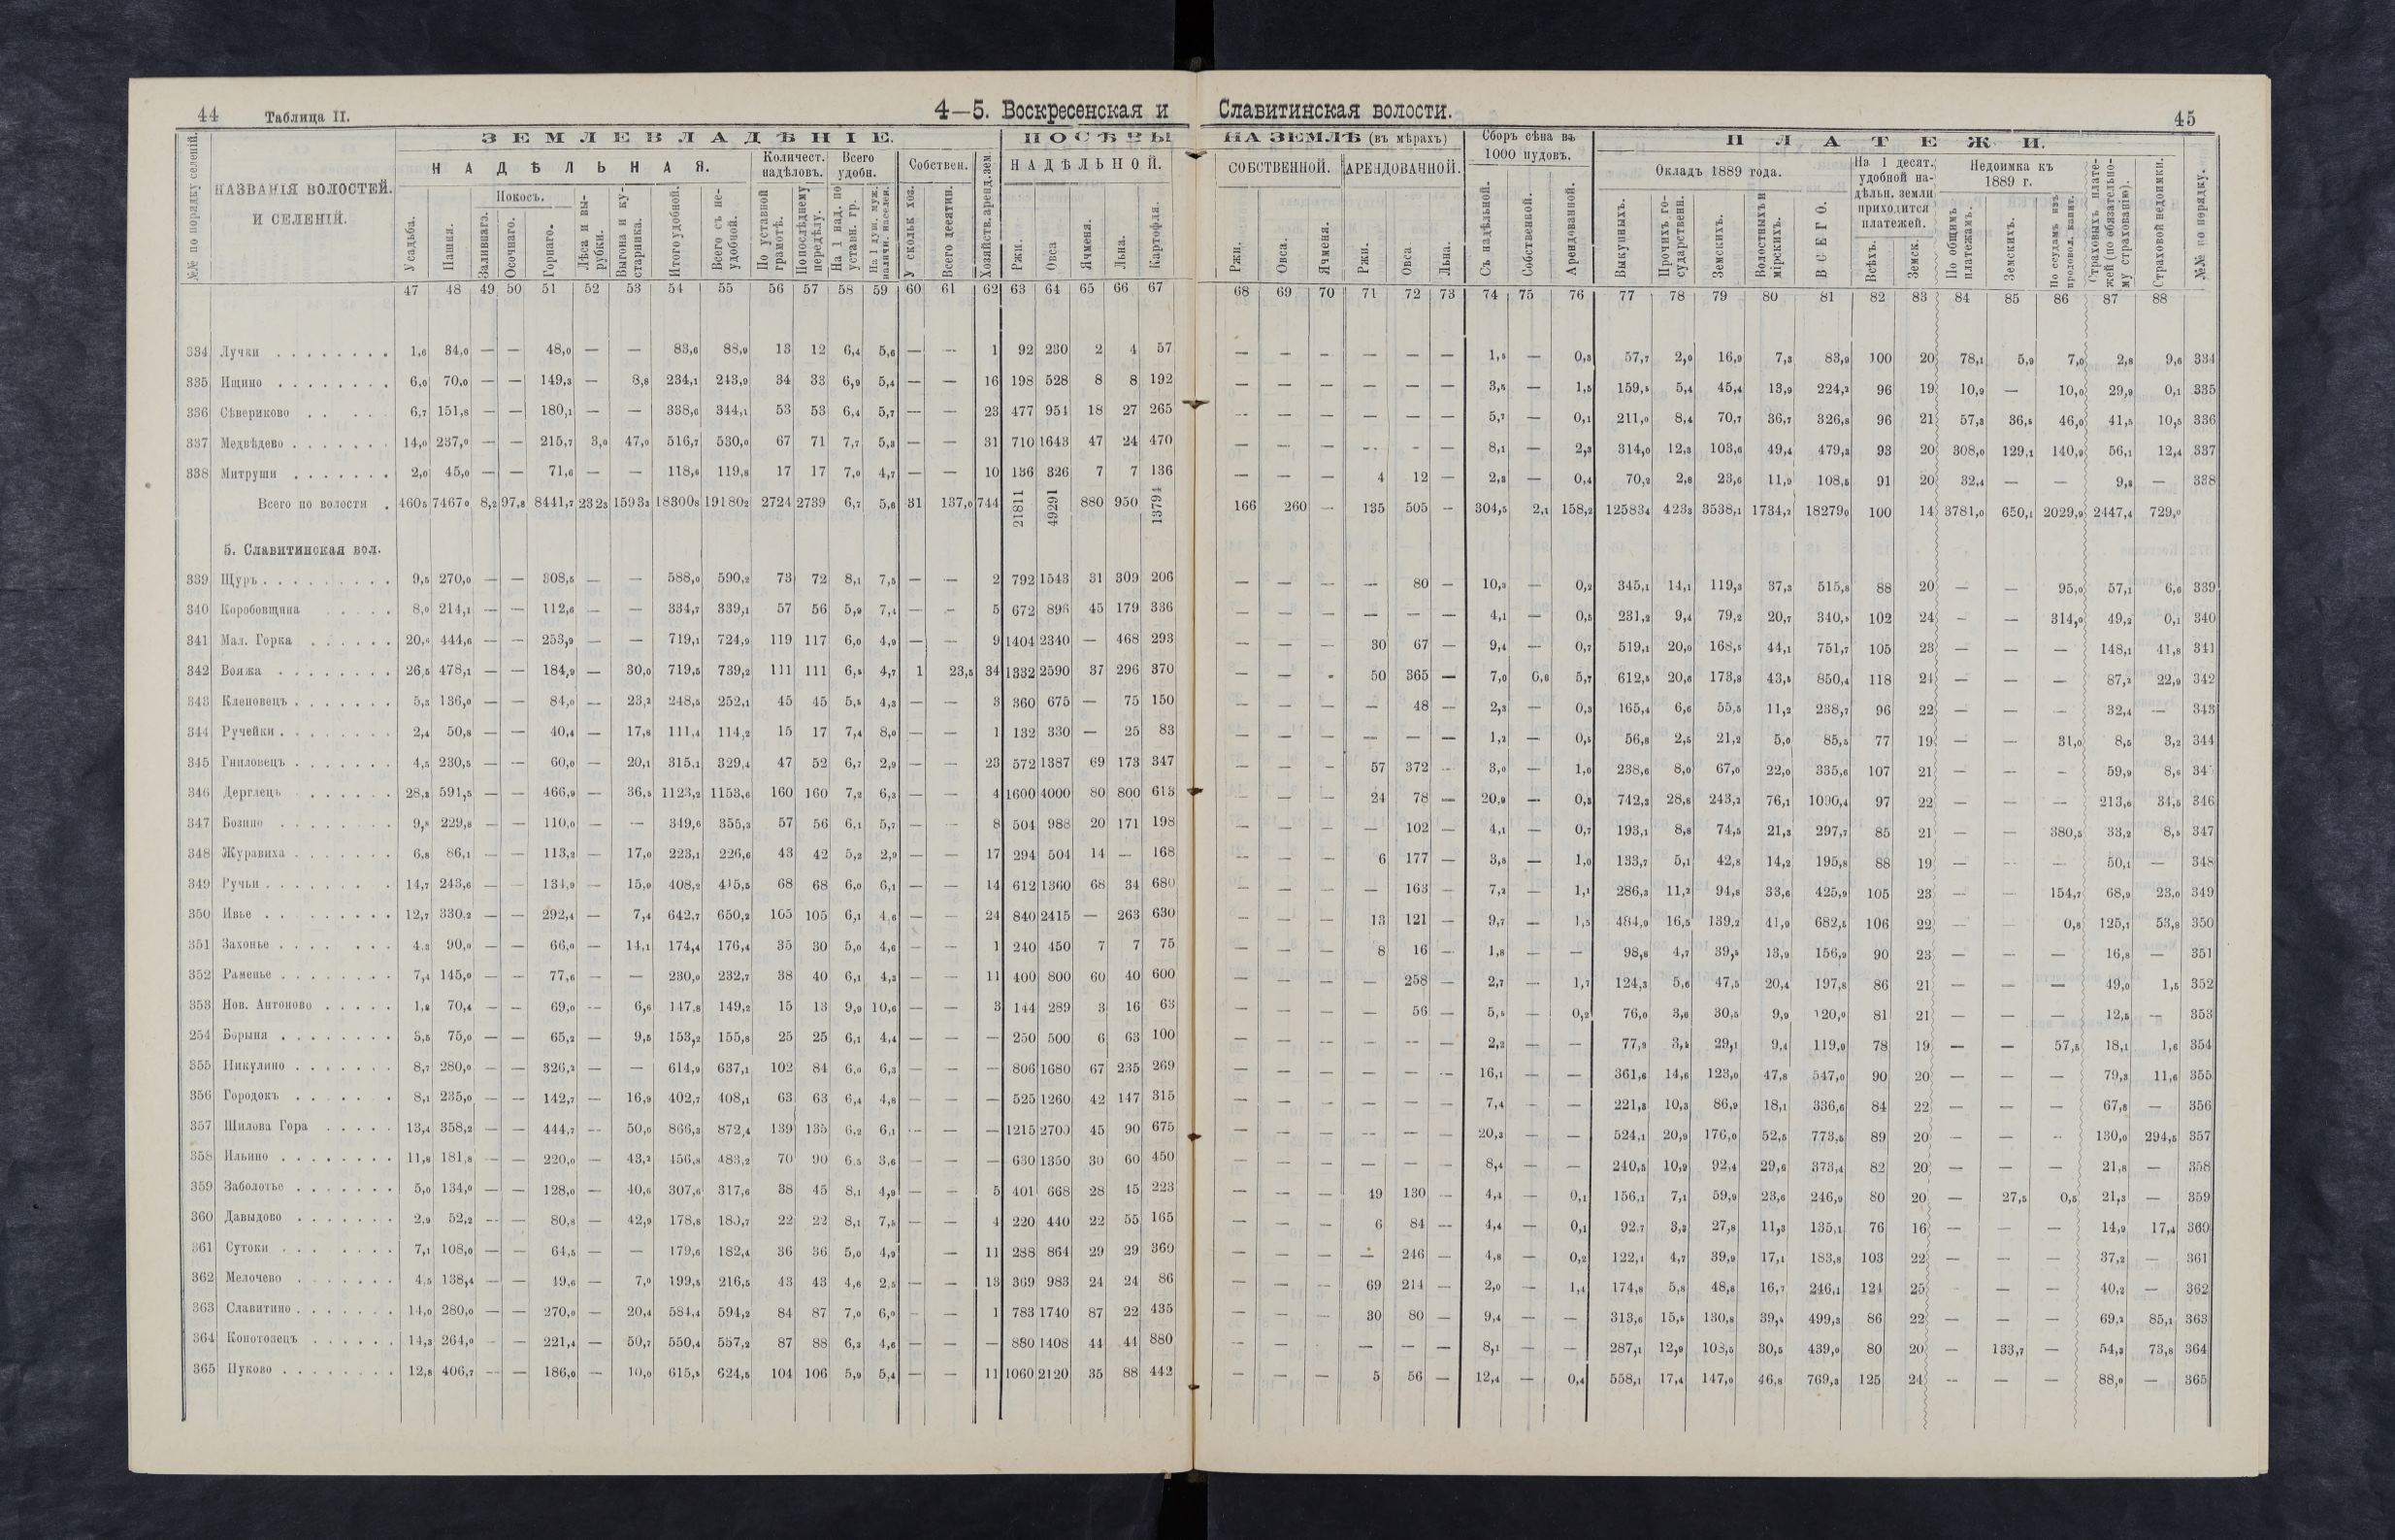 44 Таблица II. 4—5. Воскресенская и Славитинская волости. 45
ЗЕМЛЕВЛАДѢНІЕ. ПОСѢВЫ НА ЗЕМЛѢ (въ мѣрахъ) Сборъ сѣна въ 1000 пудовъ. ПЛАТЕЖИ.
№№ по порядку селеній. НАЗВАНІЯ ВОЛОСТЕЙ И СЕЛЕНІЙ. НАДѢЛЬНАЯ. Количест. надѣловъ. Всего удобн. Собствен. Хозяйств. аренд. зем. НАДѢЛЬНОЙ. СОБСТВЕННОЙ. АРЕНДОВАННОЙ. Окладъ 1889 года. На 1 десят. удобной надѣльн. земли приходится платежей. Недоимка къ 1889 г. Страховыхъ платежей (по обязательному страхованію). Страховой недоимки. №№ по порядку.
Усадьба. Пашня. Покосъ. Заливнаго. Осочнаго. Горнаго. Лѣса и вырубки. Выгона и кустарника. Итого удобной. Всего съ неудобной. По уставной грамотѣ. По послѣднему передѣлу. На 1 над. по уставн. гр. На 1 душ. муж. налич. населен. У сколько хоз. Всего десятин. Ржи. Овса Ячменя. Льна. Картофля. Ржи. Овса. Ячменя. Ржи. Овса Льна. Съ надѣльной. Собственной. Арендованной. Выкупныхъ. Прочихъ государственн. Земскихъ. Волостныхъ и мірскихъ. ВСЕГО. Всѣхъ. Земск. По общимъ платежамъ. Земскихъ. По ссудамъ изъ продовол. капит.
47 48 49 50 51 52 53 54 55 56 57 58 59 60 61 62 63 64 65 66 67 68 69 70 71 72 73 74 75 76 77 78 79 80 81 82 83 84 85 86 87 88
334 Лучки 1,6 34,0 — — 48,0 — — 83,6 88,9 13 12 6,4 5,6 — — 1 92 230 2 4 57 — — — — — — 1,5 — 0,3 57,7 2,0 16,9 7,3 83,9 100 20 78,1 5,9 7,0 2,8 9,6 334
335 Ищино 6,0 70,0 — — 149,3 — 8,8 234,1 243,9 34 33 6,9 5,4 — — 16 198 528 8 8 192 — — — — — — 3,5 — 1,5 159,5 5,4 45,4 13,9 224,2 96 19 10,9 — 10,0 29,9 0,1 335
336 Сѣвериково 6,7 151,8 — — 180,1 — — 338,6 344,1 53 53 6,4 5,7 — — 23 477 954 18 27 265 — — — — — — 5,7 — 0,1 211,0 8,4 70,7 36,7 326,8 96 21 57,3 36,5 46,0 41,5 10,5 336
337 Медвѣдево 14,0 237,0 — — 215,7 3,0 47,0 516,7 530,0 67 71 7,7 5,3 — — 31 710 1643 47 24 470 — — — — — — 8,1 — 2,3 314,0 12,3 103,6 49,4 479,3 93 20 308,0 129,1 140,9 56,1 12,4 337
338 Митруши 2,0 45,0 — — 71,6 — — 118,6 119,8 17 17 7,0 4,7 — — 10 136 326 7 7 136 — — — 4 12 — 2,8 — 0,4 70,2 2,8 23,6 11,9 108,5 91 20 32,4 — — 9,8 — 338
Всего по волости 4605 74670 8,2 97,8 8441,7 2323 15933 183008 191802 2724 2739 6,7 5,6 31 137,0 744 21811 49291 880 950 13794 166 260 — 135 505 — 304,5 2,1 158,2 125834 4233 3538,1 1734,2 182790 100 14 3781,0 650,1 2029,9 2447,4 729,0
5. Славитинская вол.
339 Щуръ 9,5 270,0 — — 308,5 — — 588,0 590,2 73 72 8,1 7,5 — — 2 792 1543 31 309 206 — — — — 80 — 10,3 — 0,2 345,1 14,1 119,3 37,3 515,8 88 20 — — 95,0 57,1 6,6 339
340 Коробовщина 8,0 214,1 — — 112,6 — — 334,7 339,1 57 56 5,9 7,4 — — 5 672 896 45 179 336 — — — — — — 4,1 — 0,5 231,2 9,4 79,2 20,7 340,5 102 24 — — 314,0 49,2 0,1 340
341 Мал. Горка 20,6 444,6 — — 253,9 — — 719,1 724,9 119 117 6,0 4,9 — — 9 1404 2340 — 468 293 — — — 30 67 — 9,4 — 0,7 519,1 20,0 168,5 44,1 751,7 105 23 — — — 148,1 41,8 341
342 Вояжа 26,5 478,1 — — 184,9 — 30,0 719,5 739,2 111 111 6,5 4,7 1 23,5 34 1332 2590 37 296 370 — — — 50 365 — 7,0 0,6 5,7 612,5 20,6 173,8 43,5 850,4 118 24 — — — 87,2 22,9 342
343 Кленовецъ 5,3 136,0 — — 84,0 — 23,2 248,5 252,1 45 45 5,5 4,3 — — 3 360 675 — 75 150 — — — — 48 — 2,3 — 0,3 165,4 6,6 55,5 11,2 238,7 96 22 — — — 32,4 — 343
344 Ручейки 2,4 50,8 — — 40,4 — 17,8 111,4 114,2 15 17 7,4 8,0 — — 1 132 330 — 25 83 — — — — — — 1,2 — 0,5 56,8 2,5 21,2 5,0 85,5 77 19 — — 31,0 8,5 3,2 344
345 Гниловецъ 4,5 230,5 — — 60,0 — 20,1 315,1 329,4 47 52 6,7 2,9 — — 23 572 1387 69 173 347 — — — 57 372 — 3,0 — 1,0 238,6 8,0 67,0 22,0 335,6 107 21 — — — 59,9 8,6 345
346 Дерглецъ 28,3 591,5 — — 466,9 — 36,5 1123,2 1153,6 160 160 7,2 6,3 — — 4 1600 4000 80 800 613 — — — 24 78 — 20,9 — 0,3 742,3 28,8 243,2 76,1 1090,4 97 22 — — — 213,6 34,5 346
347 Бозино 9,8 229,8 — — 110,0 — — 349,6 355,3 57 56 6,1 5,7 — — 8 504 988 20 171 198 — — — — 102 — 4,1 — 0,7 193,1 8,8 74,5 21,3 297,7 85 21 — — 380,5 33,2 8,5 347
348 Журавиха 6,8 86,1 — — 113,2 — 17,0 223,1 226,6 43 42 5,2 2,9 — — 17 294 504 14 — 168 — — — 6 177 — 3,6 — 1,0 133,7 5,1 42,8 14,2 195,8 88 19 — — — 50,1 — 348
349 Ручьи 14,7 243,6 — — 134,9 — 15,0 408,2 415,5 68 68 6,0 6,1 — — 14 612 1360 68 34 680 — — — — 163 — 7,2 — 1,1 286,3 11,2 94,8 33,6 425,9 105 23 — — 154,7 68,9 23,0 349
350 Ивье 12,7 330,2 — — 292,4 — 7,4 642,7 650,2 105 105 6,1 4,6 — — 24 840 2415 — 263 630 — — — 13 121 — 9,7 — 1,5 484,9 16,5 139,2 41,9 682,5 106 22 — — 0,8 125,1 53,8 350
351 Захонье 4,3 90,0 — — 66,0 — 14,1 174,4 176,4 35 30 5,0 4,6 — — 1 240 450 7 7 75 — — — 8 16 — 1,8 — — 98,8 4,7 39,5 13,9 156,9 90 23 — — — 16,8 — 351
352 Раменье 7,4 145,0 — — 77,6 — — 230,0 232,7 38 40 6,1 4,3 — — 11 400 800 60 40 600 — — — — 258 — 2,7 — 1,7 124,3 5,6 47,5 20,4 197,8 86 21 — — — 49,0 1,5 352
353 Нов. Антоново 1,8 70,4 — — 69,0 — 6,6 147,8 149,2 15 13 9,9 10,6 — — 3 144 289 3 16 63 — — — — 56 — 5,5 — 0,2 76,0 3,6 30,5 9,9 120,0 81 21 — — — 12,5 — 353
254 Борыня 3,5 75,0 — — 65,2 — 9,5 153,2 155,8 25 25 6,1 4,4 — — — 250 500 6 63 100 — — — — — — 2,2 — — 77,9 3,5 29,1 9,4 119,9 78 19 — — 57,5 18,1 1,6 354
355 Никулино 8,7 280,0 — — 326,2 — — 614,9 637,1 102 84 6,0 6,3 — — — 806 1680 67 235 269 — — — — — — 16,1 — — 361,6 14,6 123,0 47,8 547,0 90 20 — — — 79,3 11,6 355
356 Городокъ 8,1 235,0 — — 142,7 — 16,9 402,7 408,1 63 63 6,4 4,8 — — — 525 1260 42 147 315 — — — — — — 7,4 — — 221,3 10,3 86,9 18,1 336,6 84 22 — — — 67,8 — 356
357 Шилова Гора 13,4 358,2 — — 444,7 — 50,0 866,3 872,4 139 135 6,2 6,1 — — — 1215 2700 45 90 675 — — — — — — 20,3 — — 524,1 20,9 176,0 52,5 773,5 89 20 — — — 130,0 294,5 357
358 Ильино 11,8 181,8 — — 220,0 — 43,2 456,8 483,2 70 90 6,5 3,6 — — — 630 1350 30 60 450 — — — — — — 8,4 — — 240,5 10,2 92,4 29,6 373,4 82 20 — — — 21,8 — 358
359 Заболотье 5,0 134,0 — — 128,0 — 40,6 307,6 317,6 38 45 8,1 4,9 — — 5 401 668 28 45 223 — — — 49 130 — 4,4 — 0,1 156,1 7,1 59,9 23,6 246,9 80 20 — 27,5 0,5 21,3 — 359
360 Давыдово 2,9 52,2 — — 80,8 — 42,9 178,8 180,7 22 22 8,1 7,5 — — 4 220 440 22 55 165 — — — 6 84 — 4,4 — 0,1 92,7 3,3 27,8 11,3 135,1 76 16 — — — 14,9 17,4 360
361 Сутоки 7,1 108,0 — — 64,5 — — 179,6 182,4 36 36 5,0 4,9 — 11 288 864 29 29 360 — — — — 246 — 4,8 — 0,2 122,1 4,7 39,9 17,1 183,8 103 22 — — — 37,2 — 361
362 Мелочево 4,5 138,4 — — 49,6 — 7,0 199,5 216,5 43 43 4,6 2,5 — — 13 369 983 24 24 86 — — — 69 214 — 2,0 — 1,4 174,8 5,8 48,8 16,7 246,1 124 25 — — 40,2 — 362
363 Славитино 14,0 280,0 — — 270,0 — 20,4 584,4 594,2 84 87 7,0 6,0 — — 1 783 1740 87 22 435 — — — 30 80 — 9,4 — — 313,6 15,5 130,8 39,4 499,3 86 22 — — — 69,2 85,1 363
364 Конотопецъ 14,3 264,0 — — 221,4 — 50,7 550,4 557,2 87 88 6,3 4,6 — — — 880 1408 44 44 880 — — — — — — 8,1 — — 287,1 12,9 108,5 30,5 439,0 80 20 — 133,7 — 54,3 73,8 364
365 Пуково 12,8 406,7 — — 186,0 — 10,0 615,5 624,5 104 106 5,9 5,4 — — 11 1060 2120 35 88 442 — — — 5 56 — 12,4 — 0,4 558,1 17,4 147,0 46,8 769,3 125 24 — — — 88,0 — 365